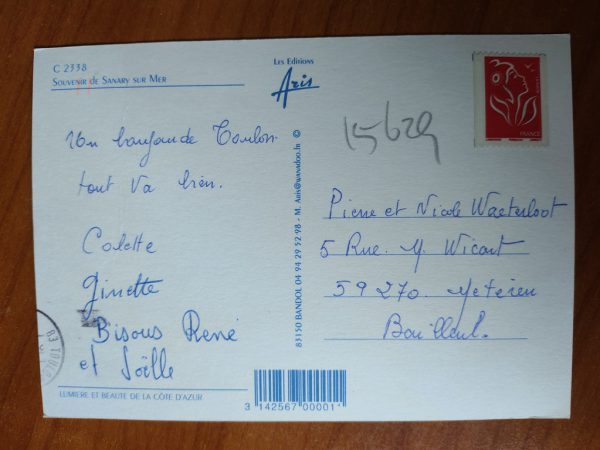 C 2338
SOUVENIR de SANARY SUR MER
Les Editions
Aris
FRANCE
15629
Un bonjour de Toulon
tout va bien.
Colette
Ginette
Bisous René
et Joëlle
Pierre et Nicole Waeterloot
5 Rue. M. Wicart
59270. Meteren
Bailleul.
83150 BANDOL 04 94 29 52 98 - M. Aris@wanadoo.fr ©
LUMIERE ET BEAUTE DE LA CÔTE D'AZUR
3 142567 00001